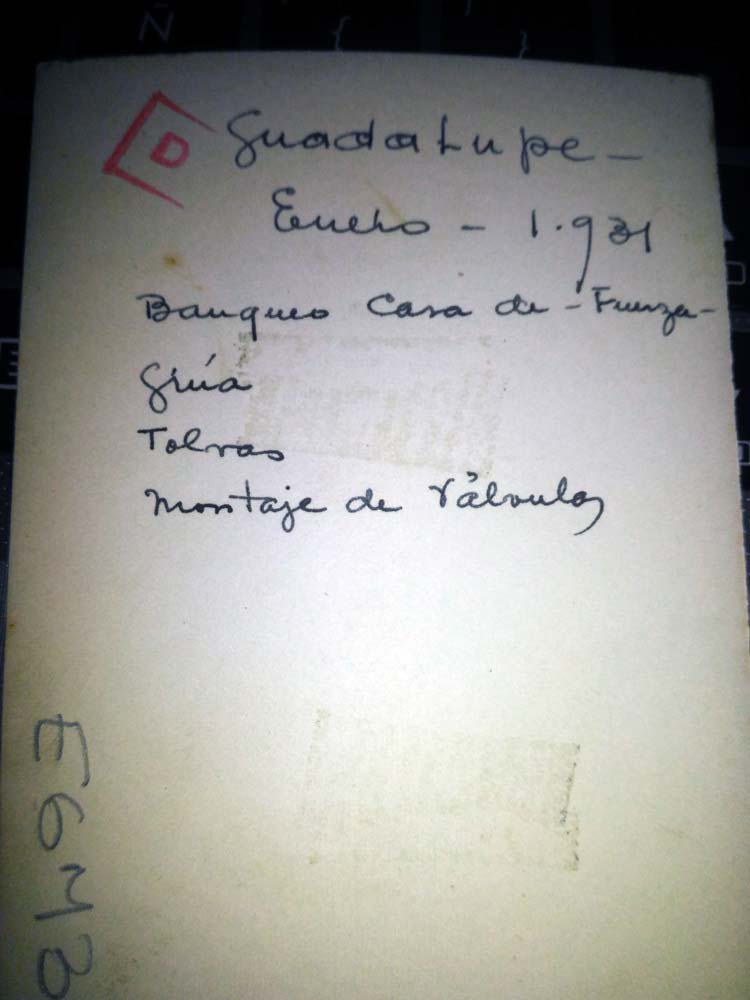 D Guadalupe -
Enero - 1.931
Banqueo Casa de - Fuerza -
Grúa
Tolvas
Montaje de Válvulas
E6MB
Ñ
{
}